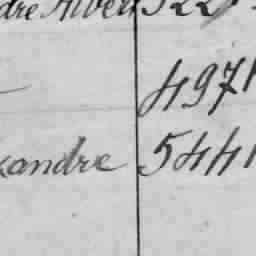 dre Albert 522
4971
xandre 5441